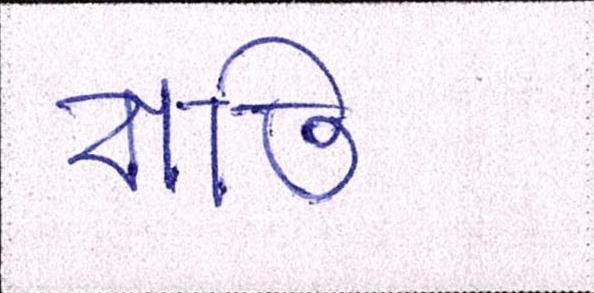 বাতি